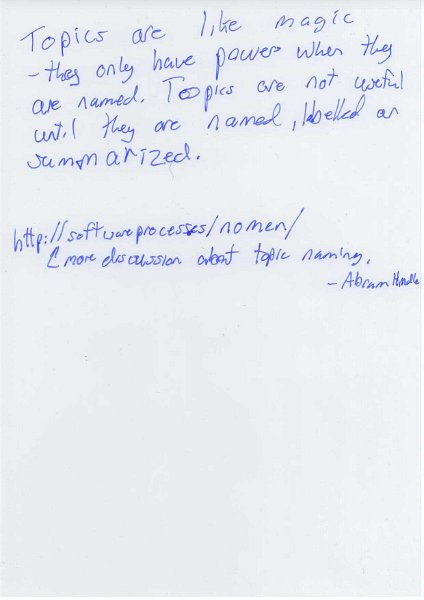 Topics are like magic
- they only have powers when they
are named. Topics are not useful
until they are named, labelled or
summarized.
http://softwareprocesses/nomen/
more discussion about topic naming.
- Abram Hindle